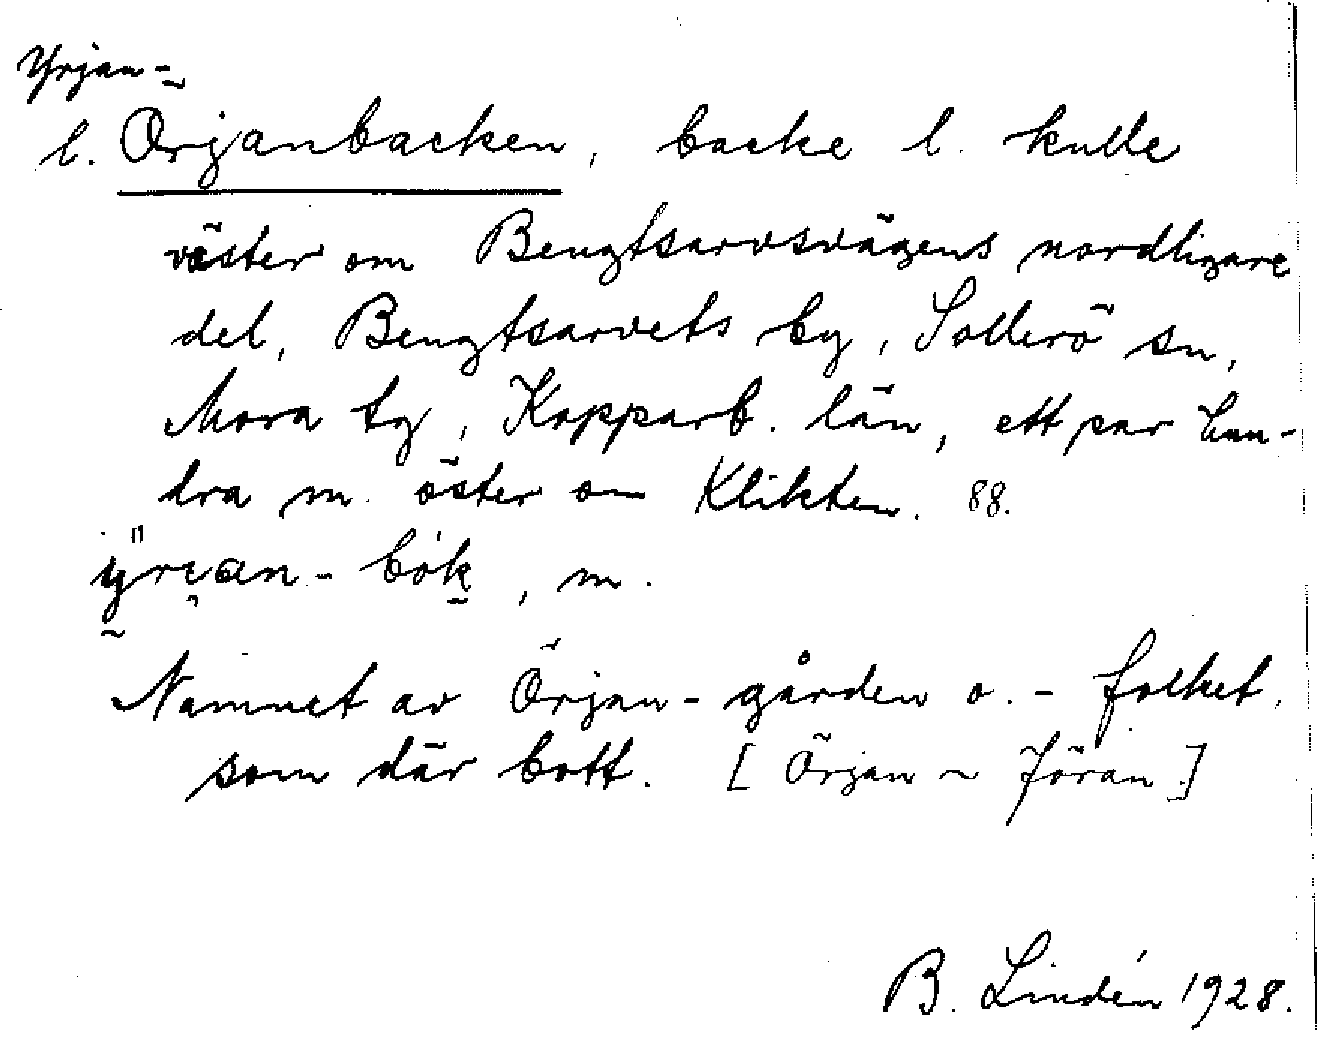 Yrjan-
l. Örjanbacken, backe l. kulle
väster om Bengtsarvsvägens nordligare
del, Bengtsarvets by, Sollerö sn,
Mora tg, Kopparb. län, ett par hun-
dra m. öster om Klikten. 88.
yrian-bók, m.
Namnet av Örjan-gården o. -folket,
som där bott. [Örjan ~ Jöran]
B. Lindén 1928.